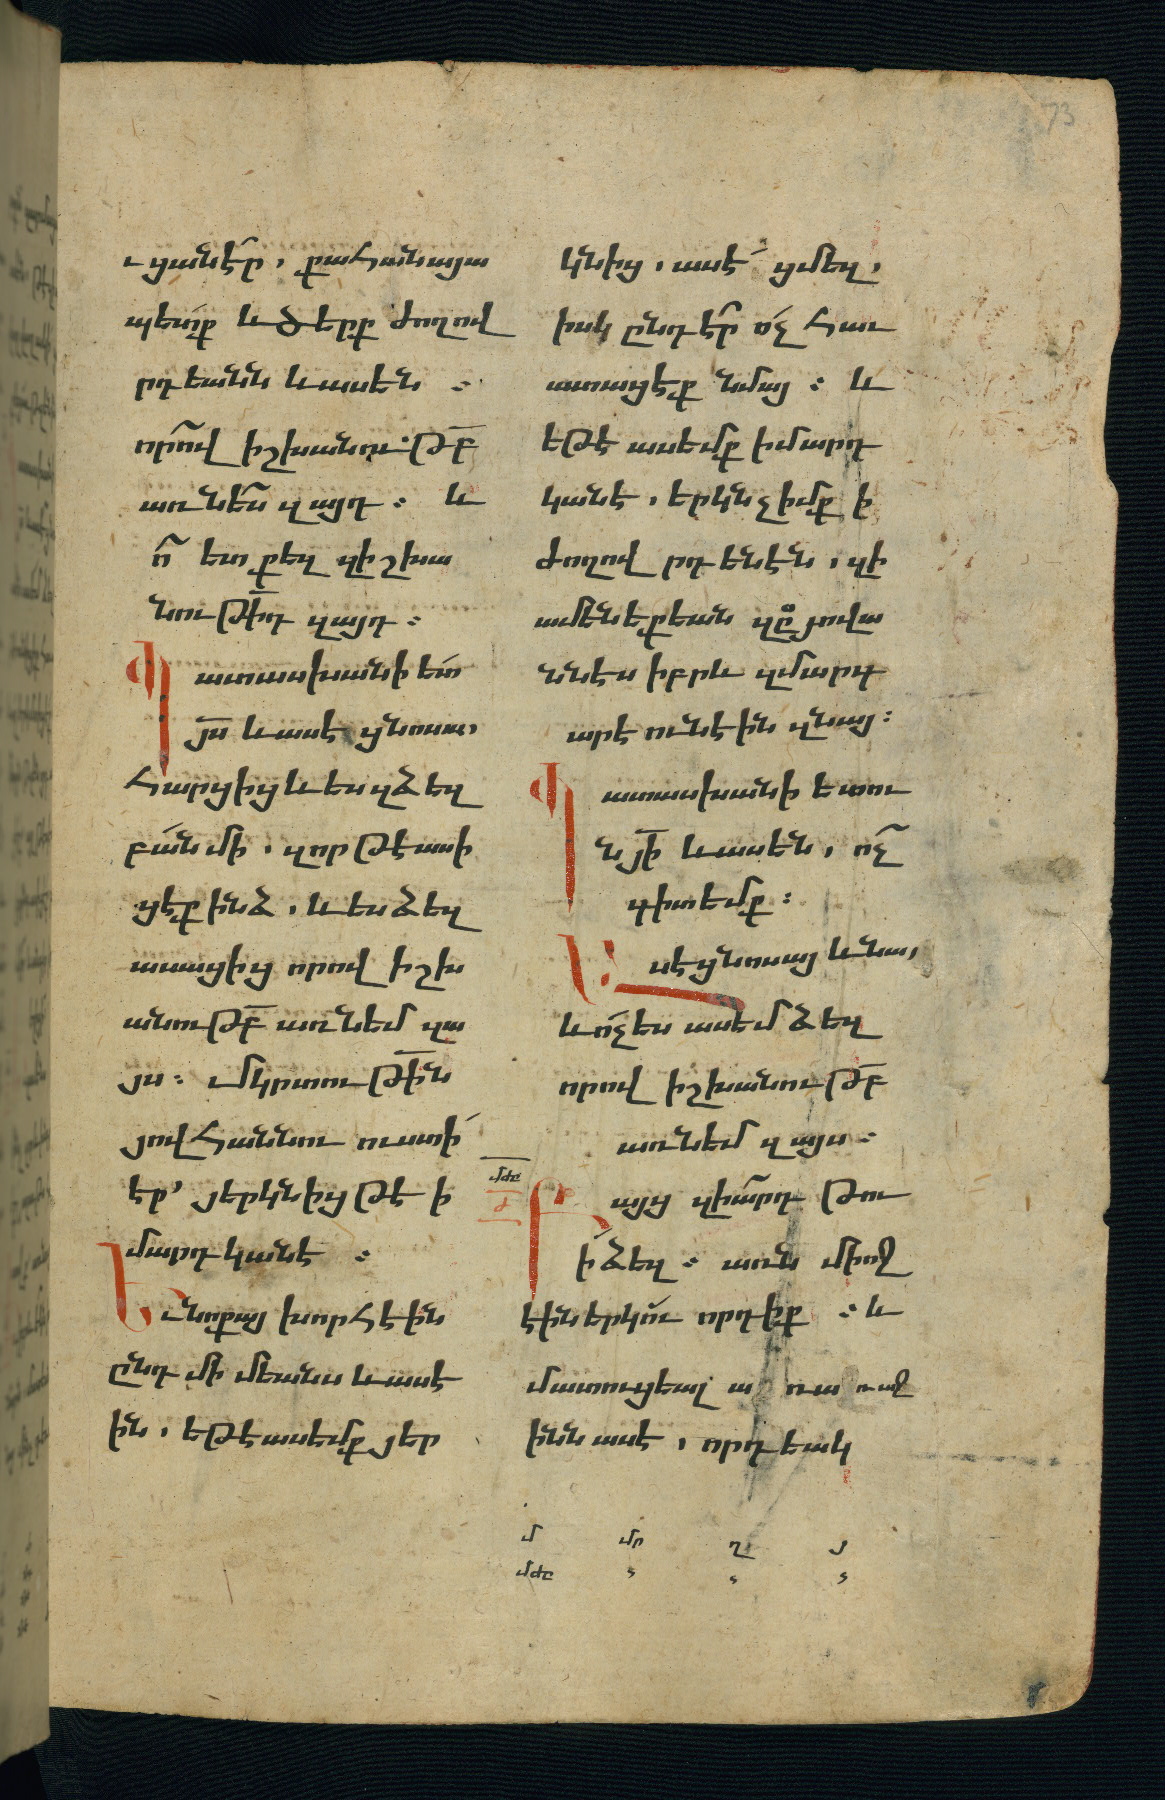 73
ւցանէր, քահանայա
պետք և ծերք ժողով
րդեանն և ասեն ։
որով իշխանութբ
առնես զայդ ։ և
ո՞ ետ քեզ զիշխա
նութիդ զայդ ։
Պատասխանի ետ
յս և ասէ ցնոսա,
Հարցից և ես զձեզ
բան մի, զոր թէ ասի
ցէք ինձ, և ես ձեզ
ասացից որով իշխ
անութբ առնեմ զա
յս ։ մկրտութին
յովհաննու ուստի
էր՝ յերկնից թէ ի
մարդկանէ ։
Եւ նոքայ խորհէին
ընդ միմեանս և ասէ
ին, եթէ ասեմք յեր
կնից, ասէ ցմեզ,
իսկ ընդէր ոչ հաւ
ատացէք նմայ ։ և
եթէ ասեմք ի մարդ
կանէ, երկնչիմք ի
ժողովրդենէն, զի
ամենեքեան զը յովա
ննէս իբրև զմարգ
արէ ունէին զնայ ։
Պատասխանի ետու
ն յի և ասեն, ոչ
գիտեմք ։
Ասէ ցնոսայ և նա,
և ոչ ես ասեմ ձեզ
որով իշխանութբ
առնեմ զայս ։
մժը
ժ
Բայց զիարդ թու
ի ձեզ ։ առն միոջ
էին երկու որդիք ։ և
մատուցեալ առաջ
ինն ասէ, որդեակ
մ մր ղ յ
մժը